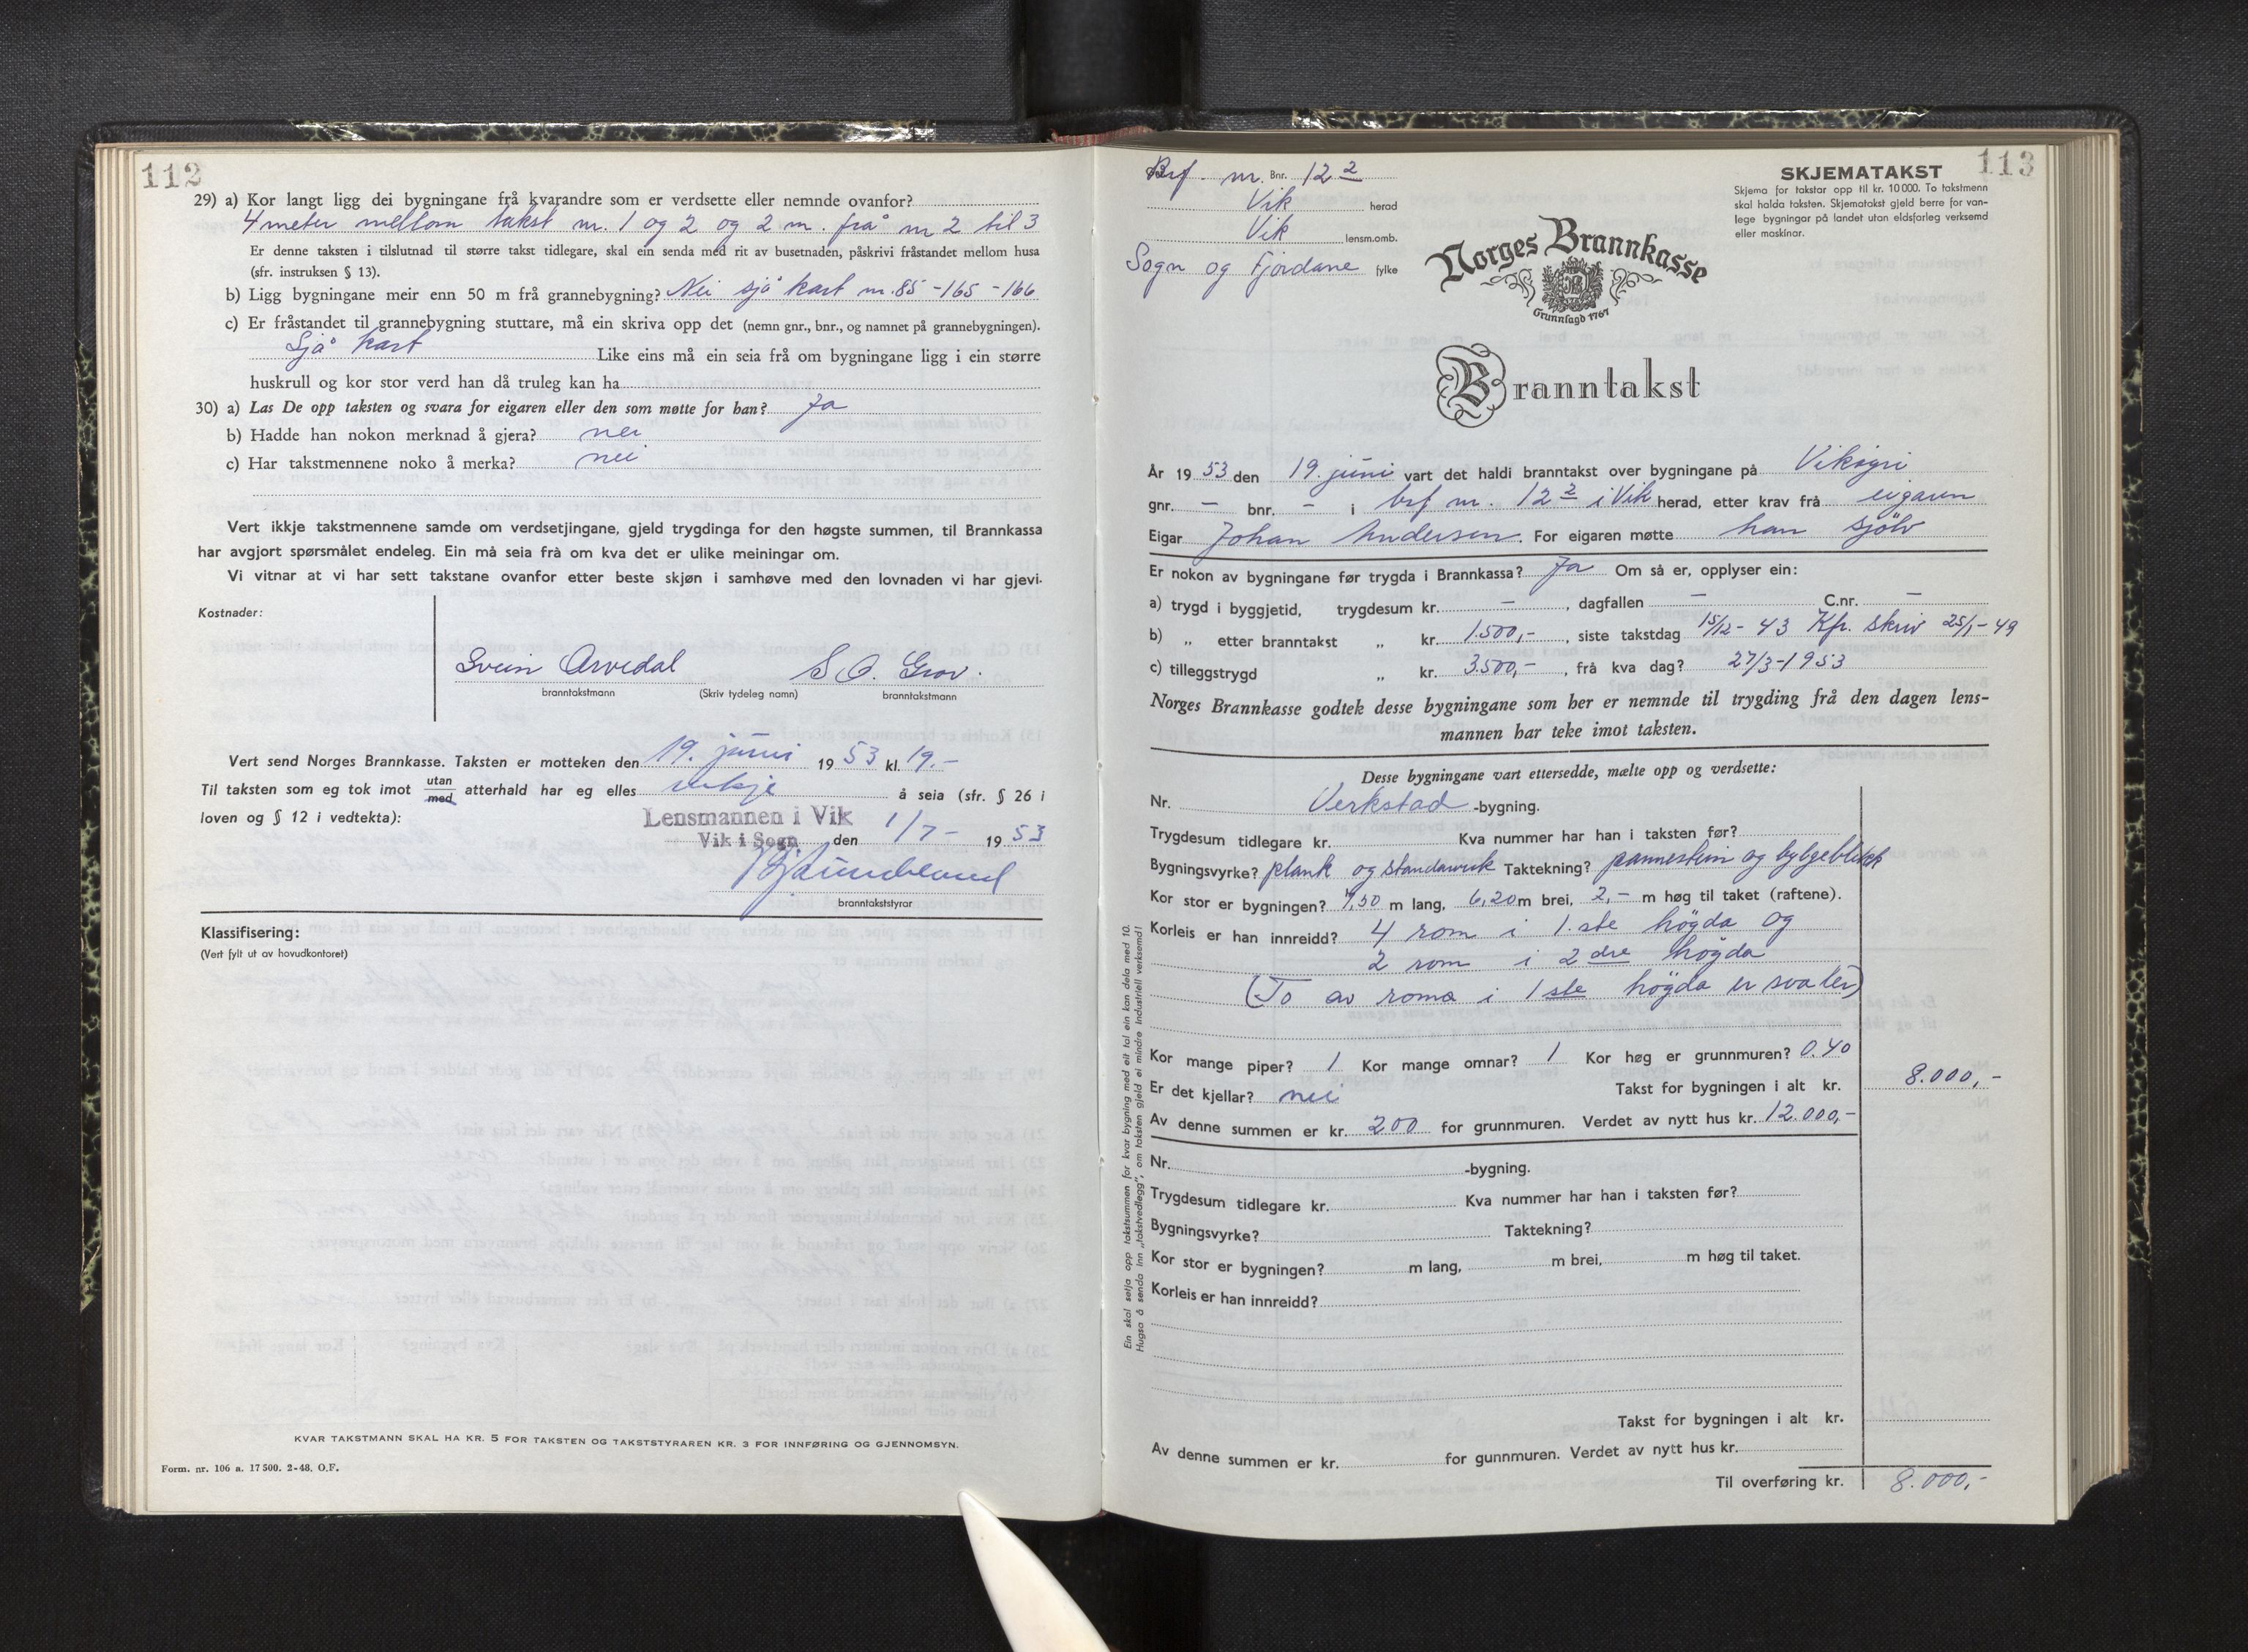 112
29) a) Kor langt ligg dei bygningane frå kvarandre som er verdsette eller nemnde ovanfor?
4 meter mellom takst nr. 1 og 2 og 2 m. frå nr 2 til 3
Er denne taksten i tilslutnad til større takst tidlegare, skal ein senda med rit av busetnaden, påskrivi fråstandet mellom husa
(sfr. instruksen § 13).
b) Ligg bygningane meir enn 50 m frå grannebygning? Nei sjå kart nr. 85 - 165 - 166
c) Er fråstandet til grannebygning stuttare, må ein skriva opp det (nemn gnr., bnr., og namnet på grannebygningen).
Sjå kart Like eins må ein seia frå om bygningane ligg i ein større
huskrull og kor stor verd han då truleg kan ha
30) a) Las De opp taksten og svara for eigaren eller den som møtte for han? Ja
b) Hadde han nokon merknad å gjera? nei
c) Har takstmennene noko å merka? nei
Vert ikkje takstmennene samde om verdsetjingane, gjeld trygdinga for den høgste summen, til Brannkassa
har avgjort spørsmålet endeleg. Ein må seia frå om kva det er ulike meiningar om.
Vi vitnar at vi har sett takstane ovanfor etter beste skjøn i samhøve med den lovnaden vi har gjevi.
Kostnader:
Svein Arvedal S O. Grov.
branntakstmann (Skriv tydeleg namn) branntakstmann
Vert send Norges Brannkasse. Taksten er motteken den 19. juni 19 53 kl. 19.-
Til taksten som eg tok imot utan/med atterhald har eg elles inkje å seia (sfr. § 26 i
loven og § 12 i vedtekta):
Lensmannen i Vik
Vik i Sogn den 1/7- 19 53
branntakststyrar
Klassifisering:
(Vert fylt ut av hovudkontoret)
KVAR TAKSTMANN SKAL HA KR. 5 FOR TAKSTEN OG TAKSTSTYRAREN KR. 3 FOR INNFØRING OG GJENNOMSYN.
Form. nr. 106 a. 17500. 2-48. O.F.
113
Brf. nr. Bnr. 12 2
Vik herad
Vik lensm.omb.
Sogn og Fjordane fylke
SKJEMATAKST
Skjema for takstar opp til kr. 10 000. To takstmenn
skal halda taksten. Skjematakst gjeld berre for van-
lege bygningar på landet utan eldsfarleg verksemd
eller maskinar.
Norges Brannkasse
Grunnlagd 1767
Branntakst
År 19 53 den 19. juni vart det haldi branntakst over bygningane på Vikøyri
gnr. - bnr. - i brf nr. 12 2 i Vik herad, etter krav frå eigaren
Eigar Johan Andersen. For eigaren møtte han sjölv
Er nokon av bygningane før trygda i Brannkassa? Ja Om så er, opplyser ein:
a) trygd i byggjetid, trygdesum kr. - , dagfallen - C.nr. -
b) „ etter branntakst „ kr. 1.500,- , siste takstdag 15/12 - 43 Kfr. skriv 25/1 - 49
c) tilleggstrygd „ kr. 3.500,- , frå kva dag? 27/3-1953
Norges Brannkasse godtek desse bygningane som her er nemnde til trygding frå den dagen lens-
mannen har teke imot taksten.
Desse bygningane vart ettersedde, mælte opp og verdsette:
Nr. Verkstad -bygning.
Trygdesum tidlegare kr. Kva nummer har han i taksten før?
Bygningsvyrke? plank og standarverk Taktekning? pannestein og bylgeblekk
Kor stor er bygningen? 9,50 m lang, 6,20 m brei, 2,- m høg til taket (raftene).
Korleis er han innreidd? 4 rom i 1.ste högda og
2 rom i 2 dre högda
(To av roma i 1 ste högda er svaler)
Kor mange piper? 1 Kor mange omnar? 1 Kor høg er grunnmuren? 0.40
Er det kjellar? nei Takst for bygningen i alt kr. 8.000,-
Av denne summen er kr. 200 for grunnmuren. Verdet av nytt hus kr. 12.000,-
Nr. -bygning.
Trygdesum tidlegare kr. Kva nummer har han i taksten før?
Bygningsvyrke? Taktekning?
Kor stor er bygningen? m lang, m brei, m høg til taket.
Korleis er han innreidd?
Takst for bygningen i alt kr.
Av denne summen er kr. for gunnmuren. Verdet av nytt hus kr.
Til overføring kr. 8.000,-
Ein skal setja opp takstsummen for kvar bygning med eit tal ein kan dela med 10.
Hugsa å senda inn „takstvedlegg", om taksten gjeld ei mindre industriell verksemd!